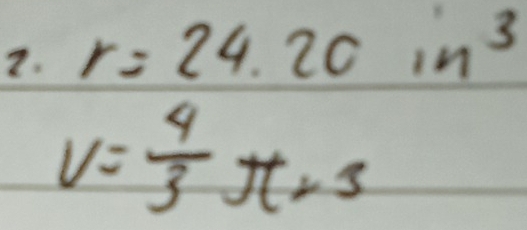 2. r = 24.20 in³
V = 4/3 πr³